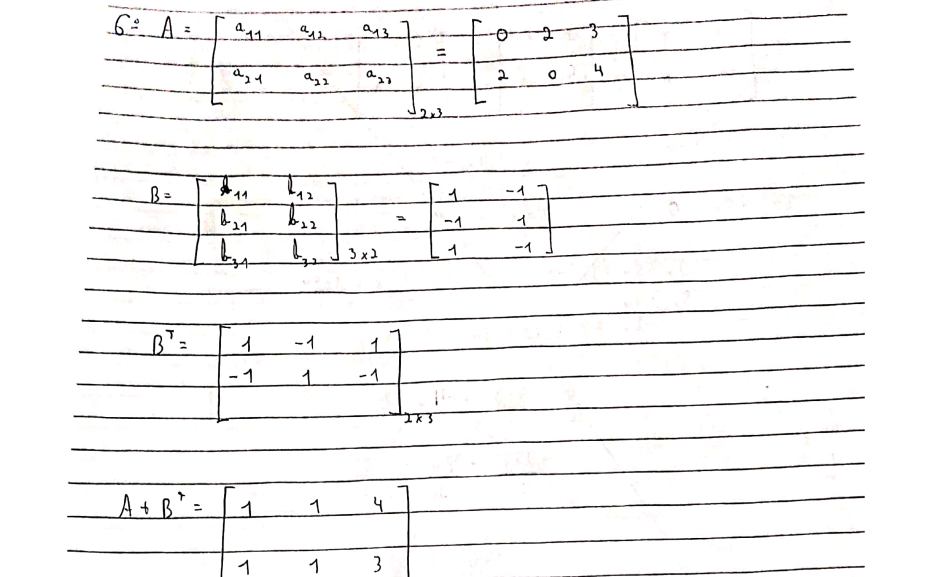 6º A = [ a₁₁ a₁₂ a₁₃ = [ 0 2 3
a₂₁ a₂₂ a₂₃ ]₂ₓ₃ 2 0 4 ]
B = [ b₁₁ b₁₂ = [ 1 -1
b₂₁ b₂₂ -1 1
b₃₁ b₃₂ ]₃ₓ₂ 1 -1 ]
Bᵀ = [ 1 -1 1
-1 1 -1 ]₂ₓ₃
A + Bᵀ = [ 1 1 4
1 1 3 ]